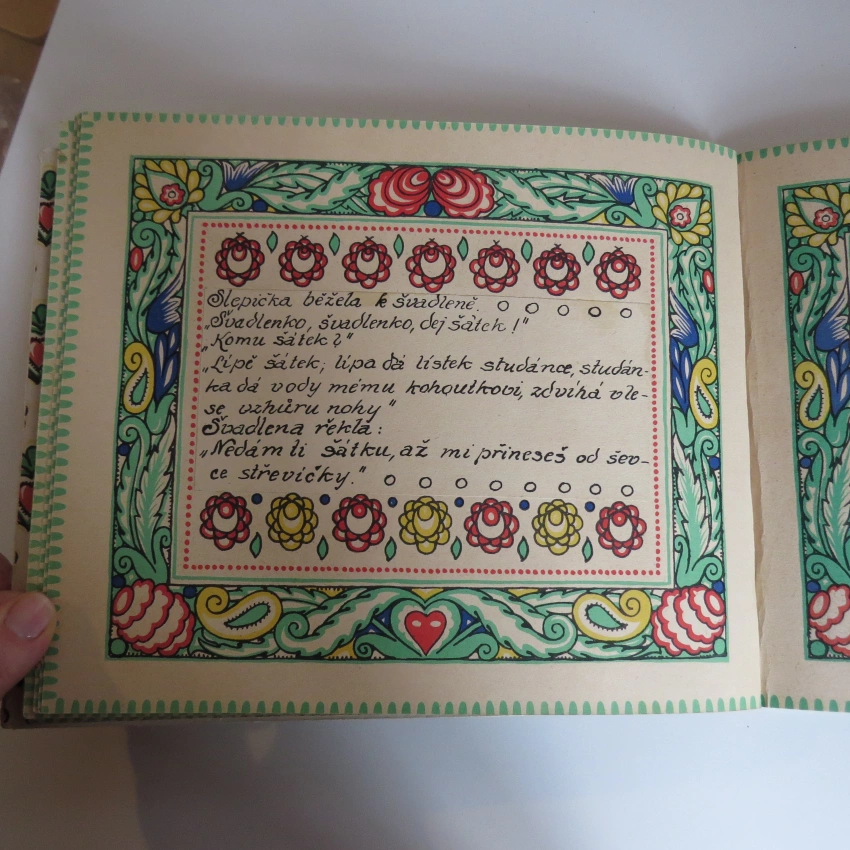 Slepička běžela k švadleně.
„Švadlenko, švadlenko, dej šátek!"
„Komu šátek?"
„Lípě šátek, lípa dá lístek studánce, studán-
ka dá vody mému kohoutkovi, zdvihá v le-
se vzhůru nohy"
Švadlena řekla:
„Nedám ti šátku, až mi přineseš od šev-
ce střevíčky."